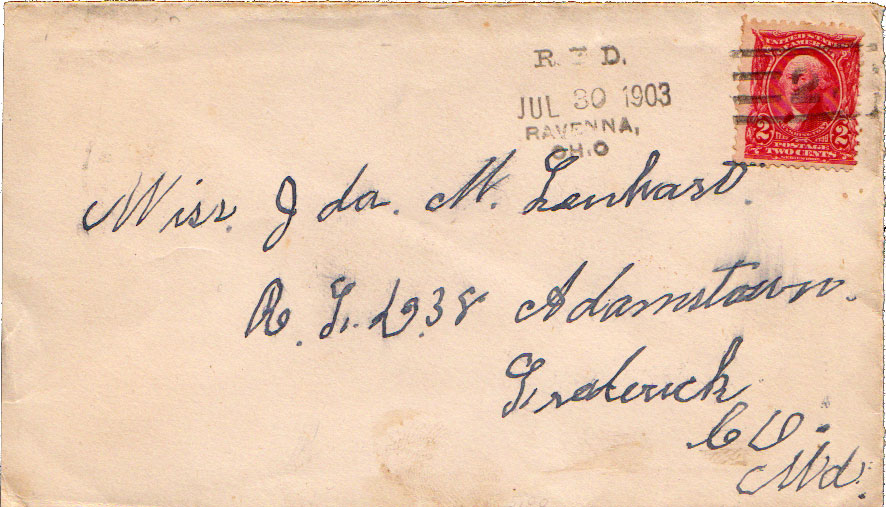 R. F. D.
JUL 30 1903
RAVENNA,
OHIO
UNITED STATES
OF AMERICA
2 2
POSTAGE
TWO CENTS
Miss. Ida. M. Lenhart.
R. F. D. 38 Adamstown.
Frederick
CO.
Md.